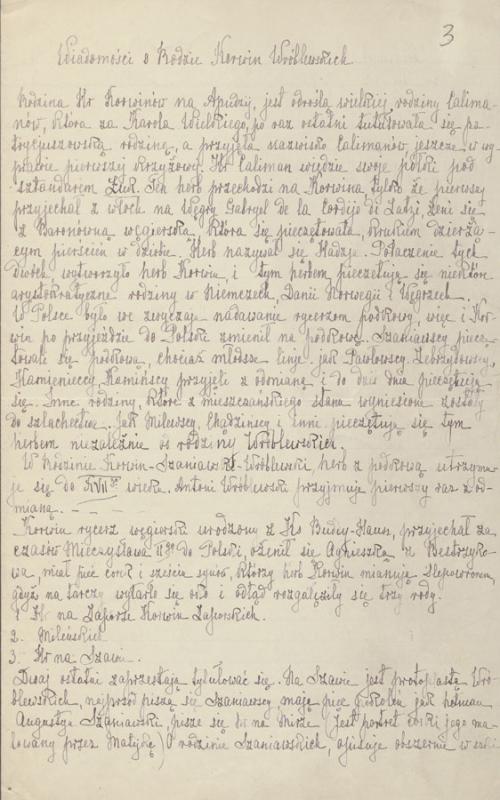 3
Wiadomości o Rodzie Korwin Wróblewskich
Rodzina Hr Korwinów na Apudzy, jest odroślą wielkiej rodziny Calima-
nów, która za Karola Wielkiego, po raz ostatni tytułowała się pa-
trycjuszowską rodziną, a przyjęła nazwisko Calimanów jeszcze w wy-
prawie pierwszej krzyżowej. Hr Caliman wiedzie swoje pułki pod
sztandarem Ich herb przechodzi na Korwina tylko że pierwszy
przyjechał z włoch na Węgry Gabryel de la żeni się
z Baronówną węgierską, która się pieczętowała, krukiem dzierżą-
cym pierścień w dziobie. Herb nazywał się Połączenie tych
dwóch wytworzyło herb Korwin, i tym herbem pieczętują się niektóre
arystokratyczne rodziny w Niemczech, Danii Norwegii i Węgrzech.
W Polsce było we zwyczaju nadawanie rycerzom podkowy, więc i Kor-
win po przyjeździe do Polski zmienił na podkowę. Szaniawscy piecz-
towali się podkową, chociaż młodsze linje jak Pawłowscy, Zebrzydowscy,
Kamienieccy, Kamińscy przyjęli z odmianą i do dziś dnia pieczętują
się. Inne rodziny, które z mieszczańskiego stanu wyniesione zostały
do szlachectwa. Jak Milewscy, Chądzińscy i inni pieczętują się tym
herbem niezależnie od rodziny Wróblewskich.
W Rodzinie Korwin-Szaniawski-Wróblewski herb z podkową utrzymu-
je się do wieku. Antoni Wróblewski przyjmuje pierwszy raz z od-
mianą. - - - -
Korwin rycerz węgierski urodzony z Ks przyjechał za
czasów Mieczysława IIgo do Polski, ożenił się Agnieszką z
miał pięć córek i sześciu synów, którzy herb Korwin mianują Ślepowronem,
gdyż na tarczy wytarło się oko i odtąd rozgałęziły się trzy rody.
1 Hr na Zagórze Korwin Zagorskich.
2. Milińskich
3. Hr na Szawin.
Dwaj ostatni zaprzestają tytułować się. Na Szawin jest protoplastą Wró-
blewskich, najprzód piszą się Szaniawscy, mają pięć jak hetman
Augustyn Szaniawski, pisze się hr na Mirze (jest portret córki jego ma-
lowany przez Matejkę) O rodzinie Szaniawskich, opisuje obszernie